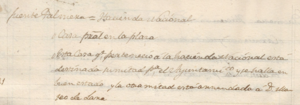 fuente Palmera = Hacienda nacional
Casa pral en la plaza
Esta casa qe pertenecio a la hacienda nacional está
destinada su mitad pa el Ayuntamto y se halla en
buen estado y la otra mitad está arrendada a D.
de Lara